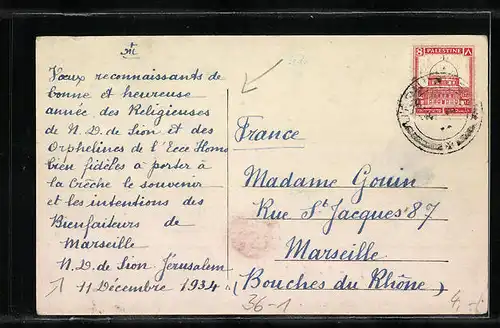 Vœux reconnaissants de
bonne et heureuse
année des Religieuses
de N. D. de Sion et des
Orphelines de l'Ecce Homo
bien fidèles à porter à
la Crèche le souvenir
et les intentions des
Bienfaiteurs de
Marseille
N. D. de Sion Jérusalem
11 Décembre 1934
8 PALESTINE ٨
France
Madame Gouin
Rue St Jacques 87
Marseille
(Bouches du Rhône)
36-1
4,-